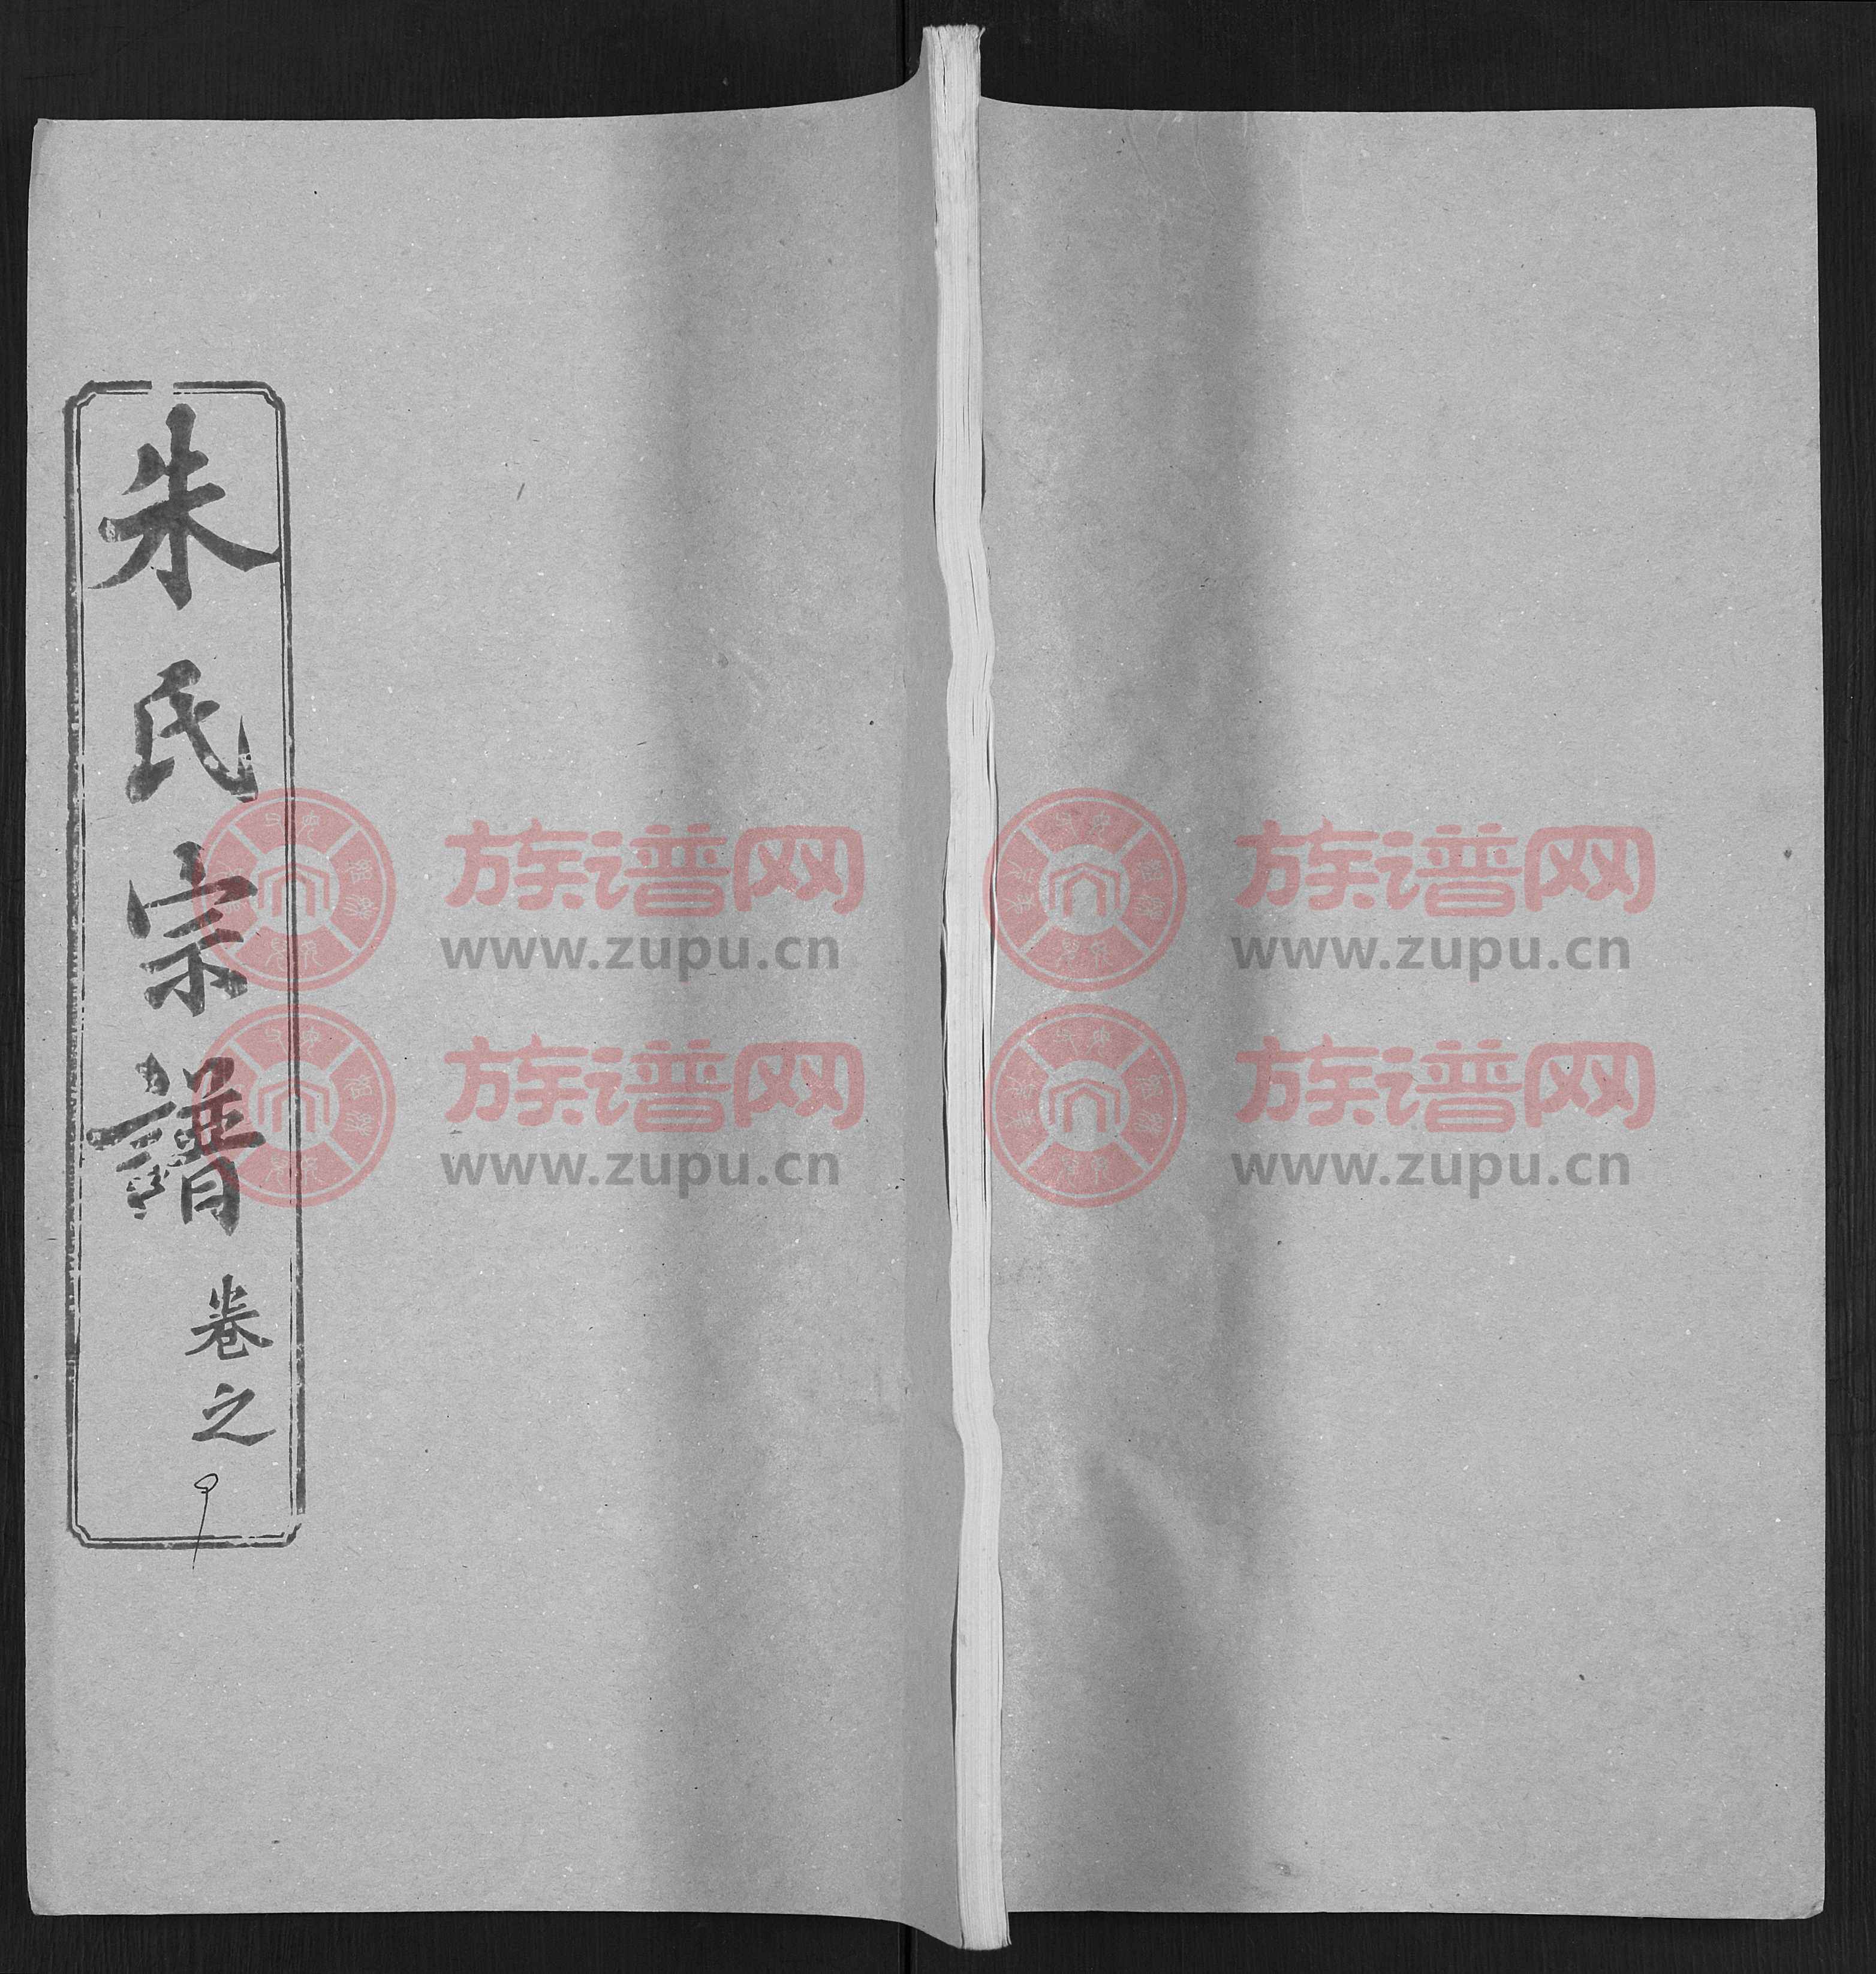 朱氏宗譜 卷之
9
族谱网
www.zupu.cn
族谱网
www.zupu.cn
族谱网
www.zupu.cn
族谱网
www.zupu.cn